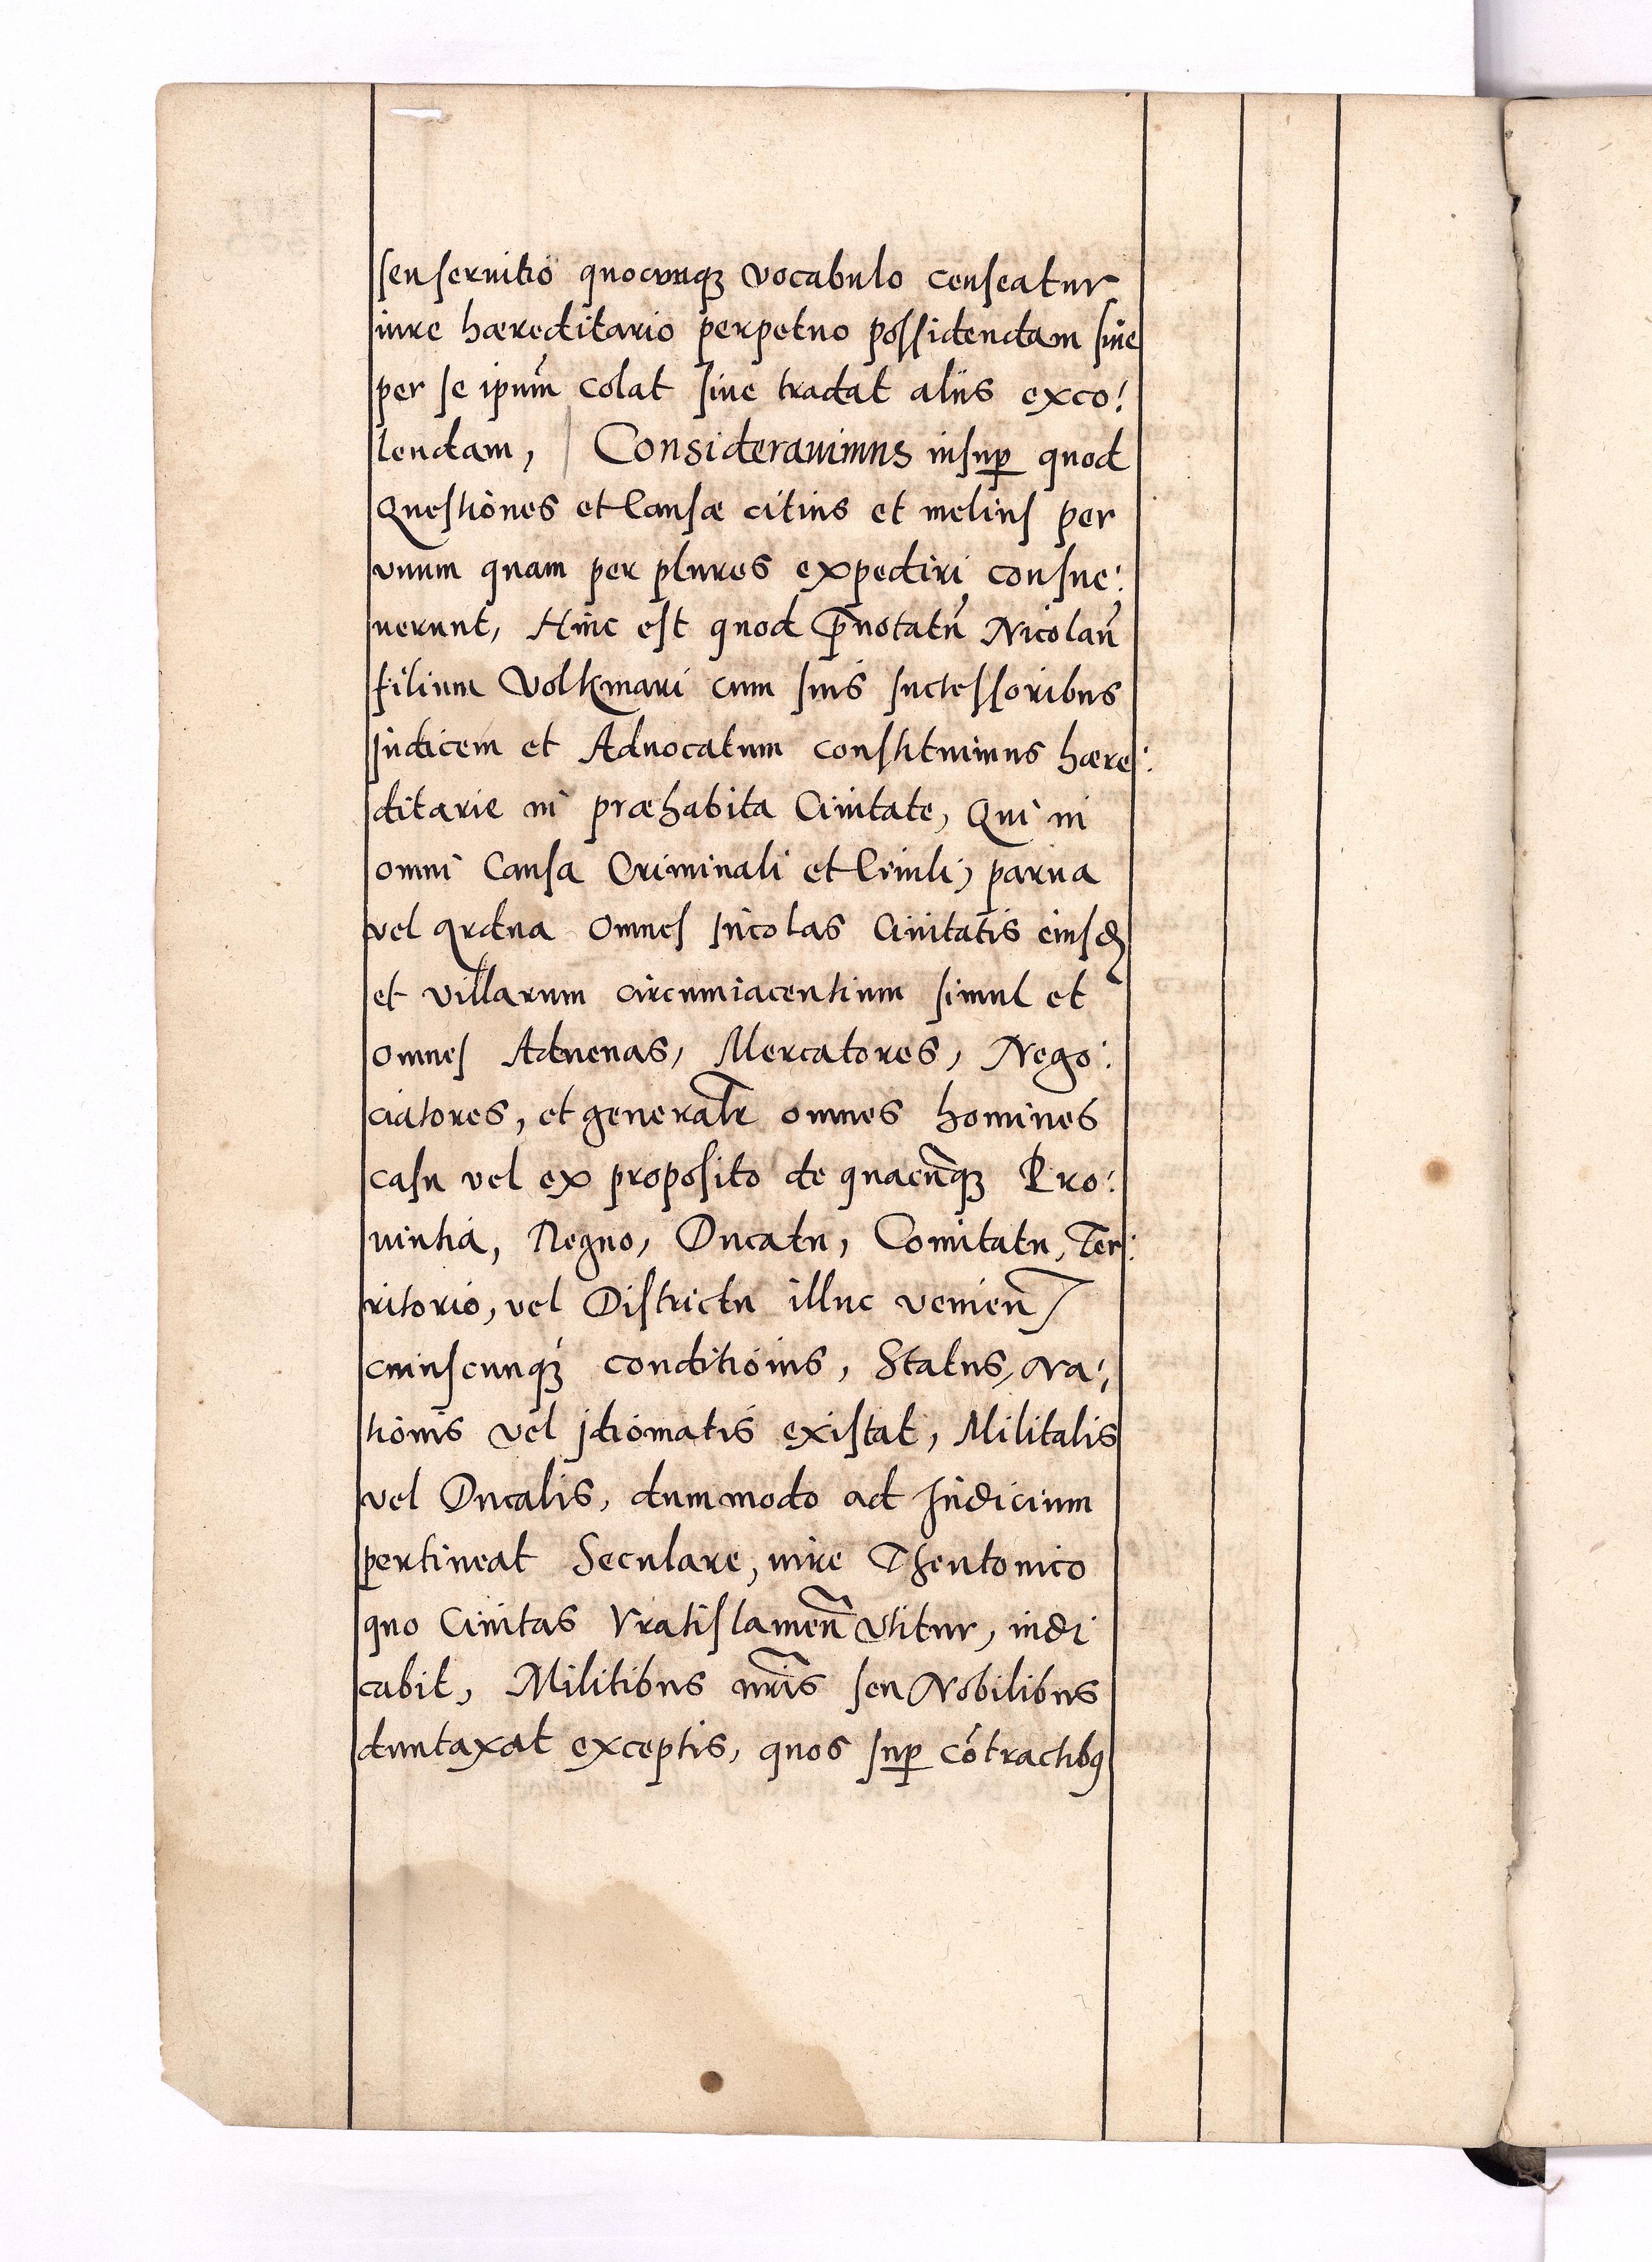 seu seruitio quocunqꝫ vocabulo censeatur
iure hæreditario perpetuo possidendam siue
per se ipum̄ colat siue tradat alijs exco:
lendam, | Considerauimus insuꝑ quod
Questiones et Causæ citius et melius per
vnum quam per plures expediri consue:
uerunt, Hinc est quod p̄notatū Nicolaū
filium Volkmari cum suis successoribus
Judicem et Aduocatum constituimus hære:
ditarie in præhabita Ciuitate, Qui in
omni Causa Criminali et Ciuili, parua
vel ardua omnes Incolas Ciuitatis eiusd
et villarum circumiacentium simul et
omnes Aduenas, Mercatores, Nego:
ciatores, et generalr̄ omnes homines
casu vel ex proposito de quacūqꝫ Pro:
uintia, Regno, Ducatu, Comitatu, Ter:
ritorio, vel Districtu illuc venien̄
cuiuscunqꝫ conditionis, Status, Na:
tionis vel Idiomatis existat, Militalis
vel Ducalis, dummodo ad Iudicium
pertineat Seculare, iure Theutonico
quo Ciuitas Vratislauien̄ vtitur, iudi
cabit, Militibus nr̄is seu Nobilibus
duntaxat exceptis, quos suꝑ cōtractibꝰ